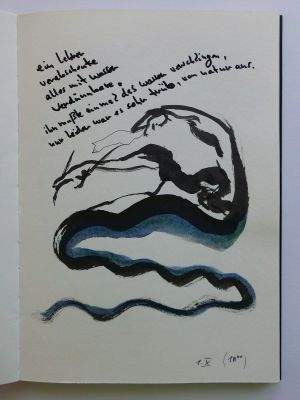 ein lehrer
verabscheute
alles mit wasser
verdünnbare.
ihn mußte einmal das wasser verschlingen,
nur leider war es sehr trübe, von natur aus.
1. X